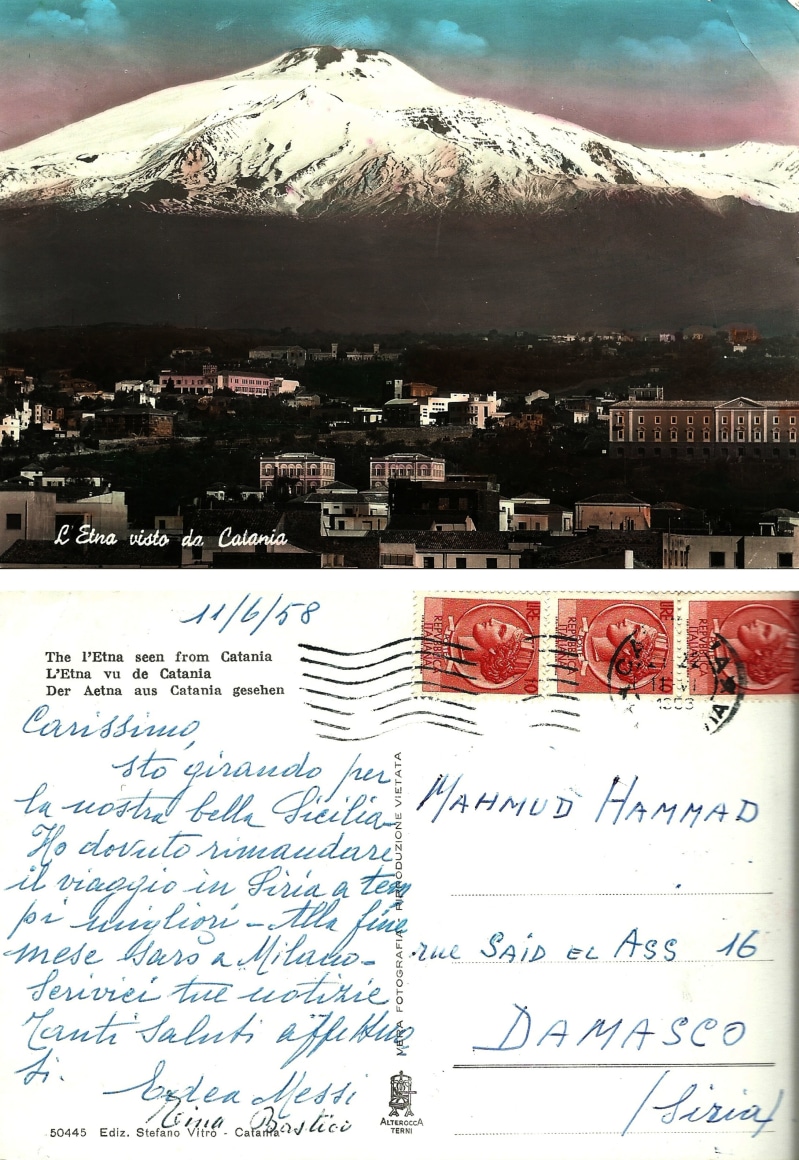 L'Etna visto da Catania
11/6/58
The l'Etna seen from Catania
L'Etna vu de Catania
Der Aetna aus Catania gesehen
Carissimo,
sto girando per
la nostra bella Sicilia-
Ho dovuto rimandare
il viaggio in Siria a tem
pi migliori - Alla fine
mese sarò a Milano-
Scrivici tue notizie
Tanti saluti affettuo
si.
Messi
Nina
50445 Ediz. Stefano Vitro - Catania
VERA FOTOGRAFIA - RIPRODUZIONE VIETATA
ALTEROCCA
TERNI
REPVBBLICA ITALIANA LIRE 10
REPVBBLICA ITALIANA LIRE 10
REPVBBLICA ITALIANA LIRE
MAHMUD HAMMAD
rue SAID EL ASS 16
DAMASCO
(Siria)